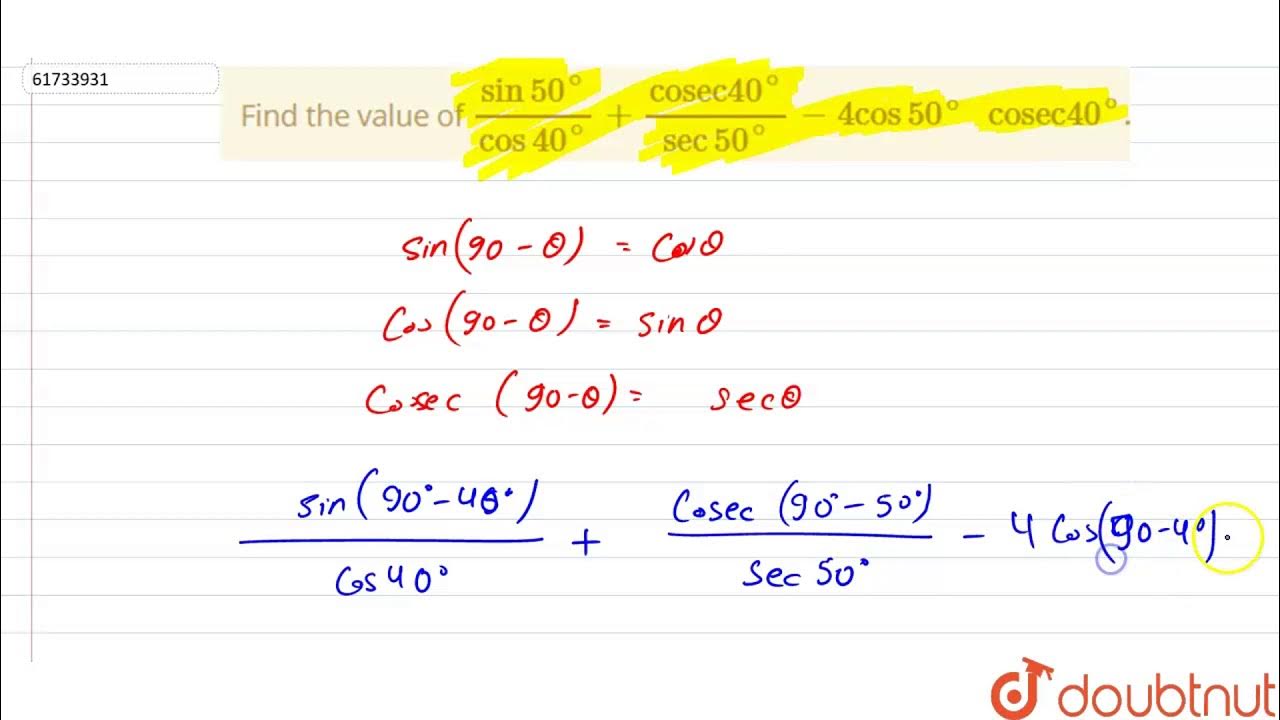 61733931
Find the value of sin 50° / cos 40° + cosec40° / sec 50° − 4cos 50° cosec40°.
sin(90 - θ) = Cosθ
Cos(90 - θ) = sinθ
Cosec (90-θ) = secθ
sin(90°-40°) / Cos40° + Cosec (90°-50°) / Sec 50° - 4 Cos(90-4°).
doubtnut